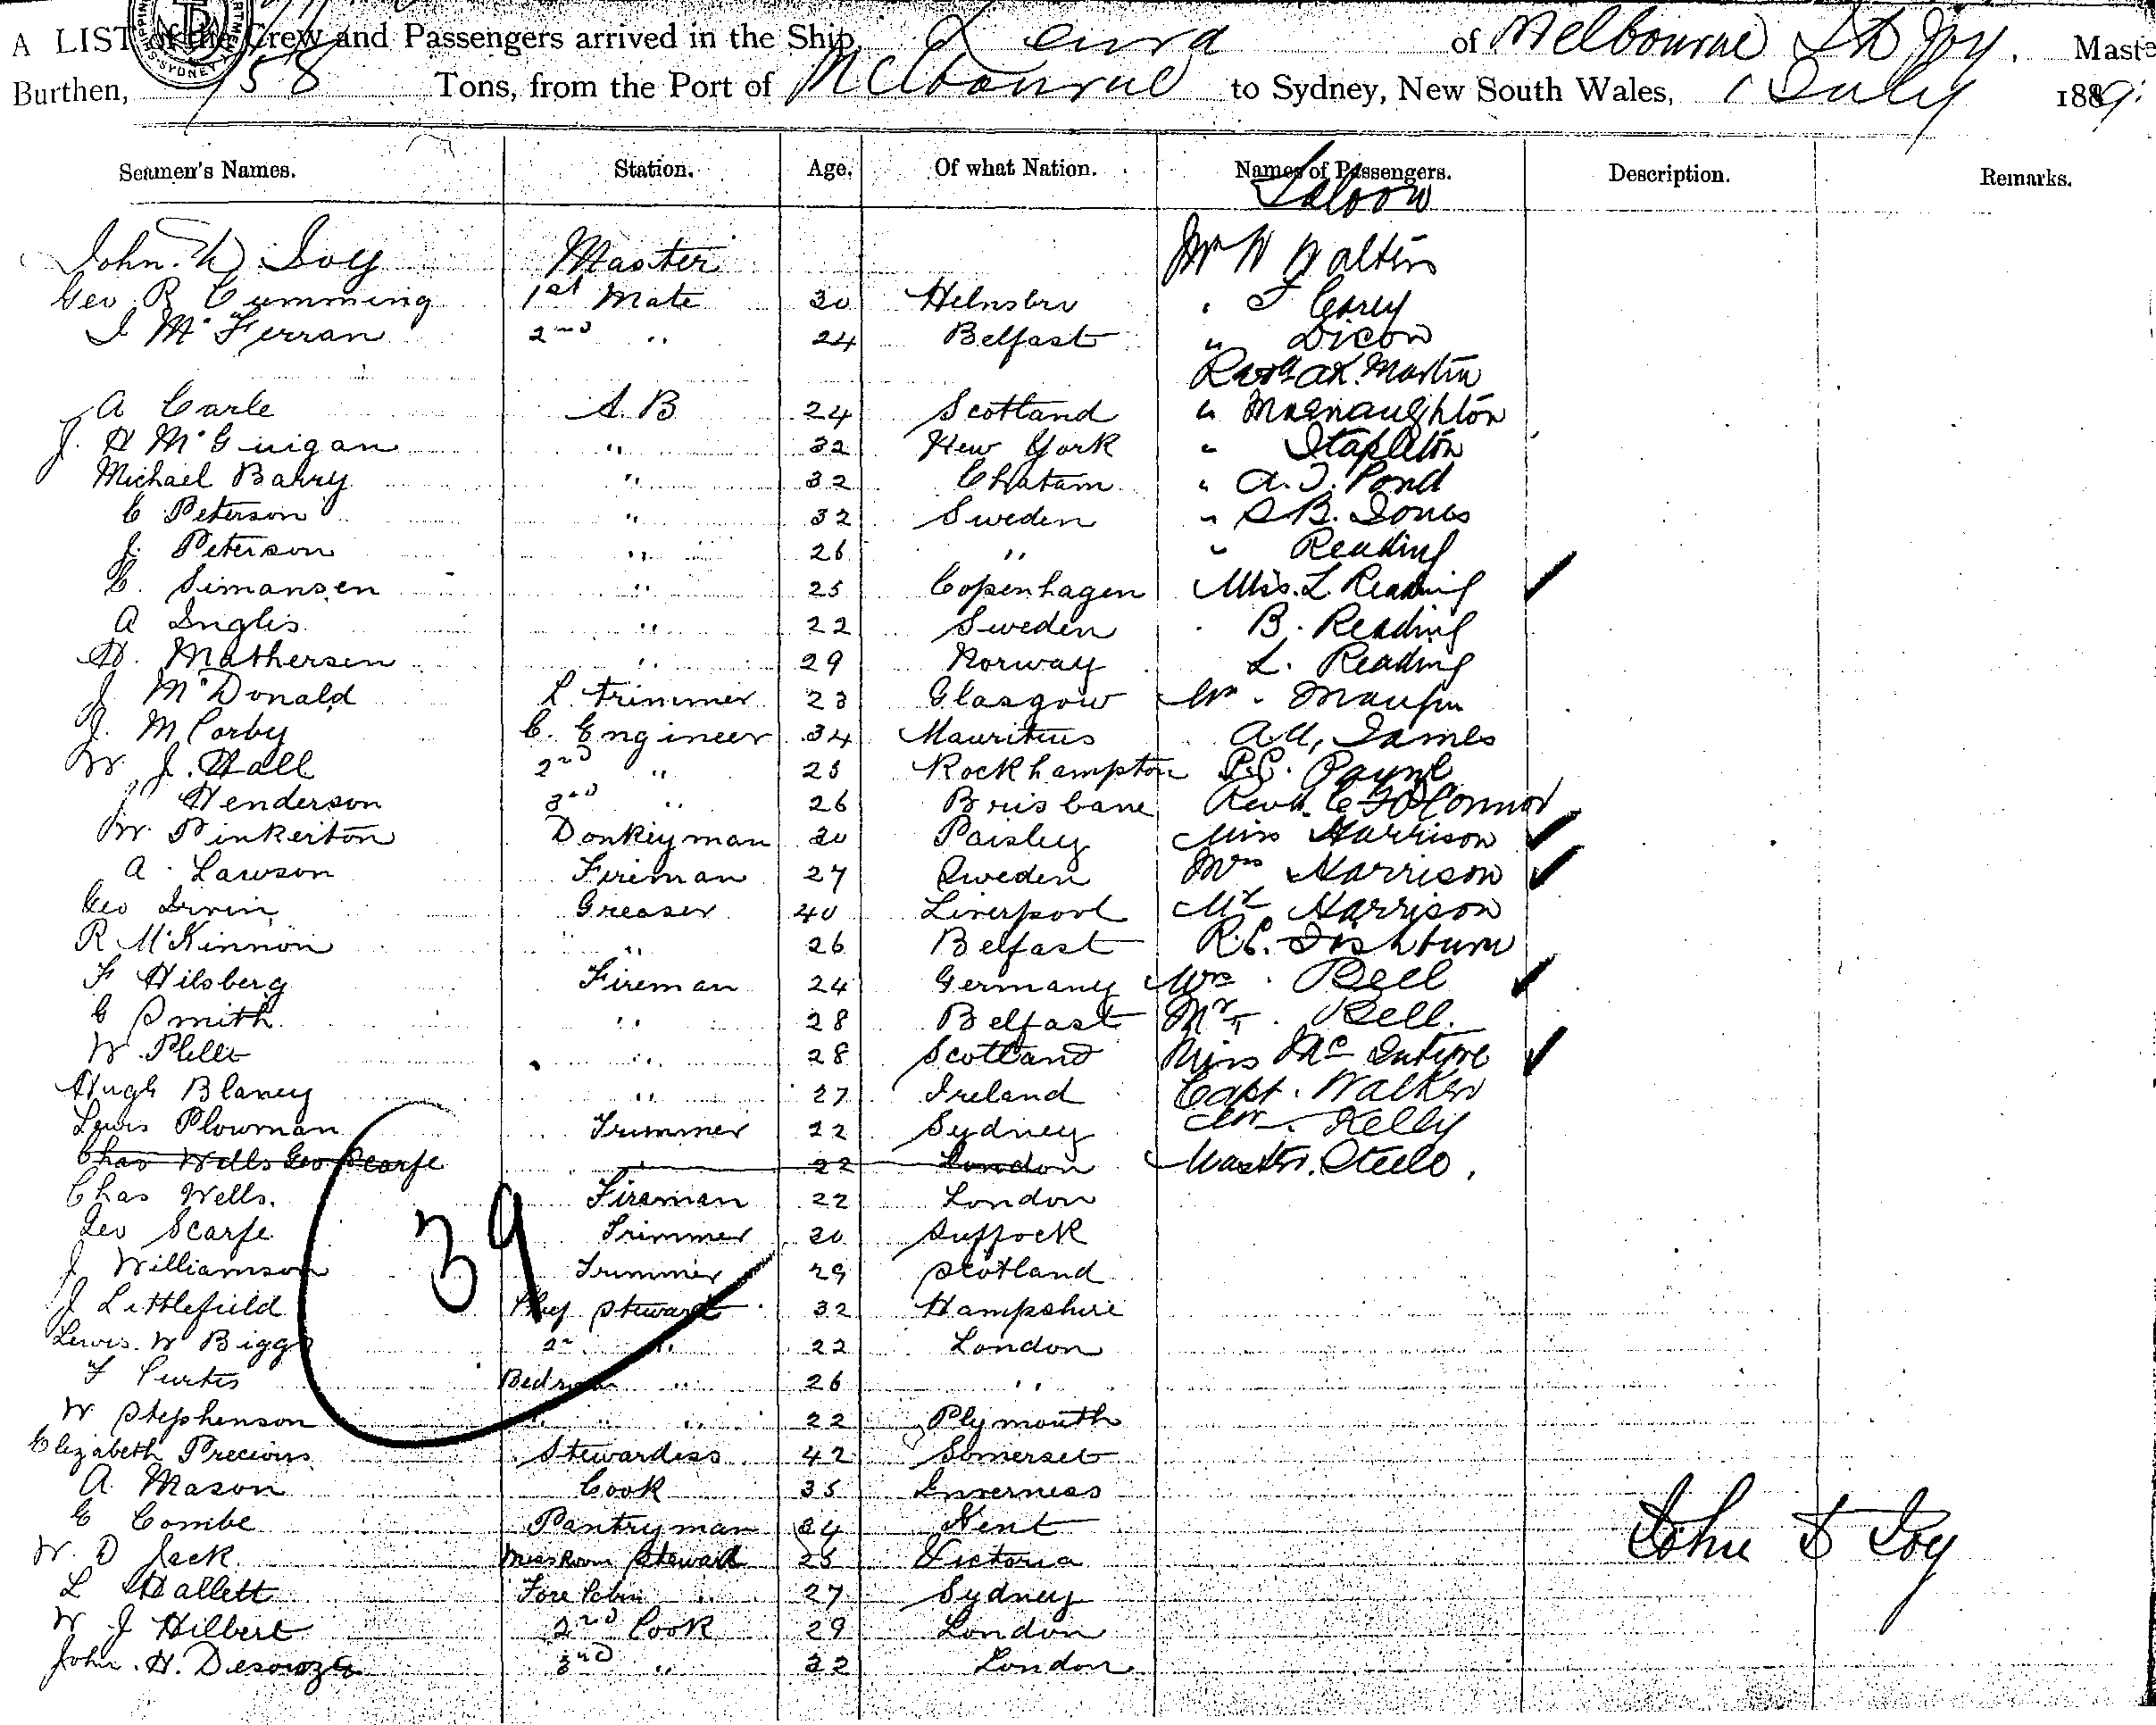 A LIST of the Crew and Passengers arrived in the Ship of Melbourne Joy, Master
Burthen, 758 Tons, from the Port of Melbourne to Sydney, New South Wales, 1 July 1889.
Seamen's Names. Station. Age. Of what Nation. Names of Passengers. Description. Remarks.
Saloon
John W Joy Master Mr W Walters
Geo R Cumming 1st Mate 30 " F Corey
J McFerran 2nd " 24 Belfast " Dixon
Martin
A Carle A.B 24 Scotland " Macnaughton
J. H McGuigan " 32 New York " Stapleton
Michael Barry " 32 Chatam " A. J. Pond
C Peterson " 32 Sweden " S B. Jones
J. Peterson " 26 " " Reading
C. Simansen " 25 Copenhagen Miss. L Reading
A Inglis " 22 Sweden B. Reading
H. Mathersen " 29 Norway L. Reading
J McDonald L. Trimmer 23 Glasgow Mr.
J. M Corby C. Engineer 34 Mauritius James
W. J. Hall 2nd " 25 Rockhampton P.C. Payne
J Henderson 3rd " 26 Brisbane Revd. O'Connor
W. Pinkerton Donkeyman 30 Paisley Miss Harrison
A. Lawson Fireman 27 Sweden Mrs Harrison
Geo Irvin Greaser 40 Liverpool Mr Harrison
R McKinnon " 26 Belfast R.C. Fishburn
F Hilsberg Fireman 24 Germany Mrs. Bell
G Smith " 28 Belfast Mr. Bell.
W. " 28 Scotland Miss McIntyre
Hugh Blaney " 27 Ireland Capt. Walker
Lewis Plowman Trimmer 22 Sydney Mr. Kelly
Chas Wells Geo Scarfe " 22 London Master. Steele.
Chas Wells. Fireman 22 London
Geo Scarfe Trimmer 20 Suffock
39
J Williamson Trimmer 29 Scotland
J Littlefield Chief Steward 32 Hampshire
Lewis. W Biggs 2nd " 22 London
F Curtis Bedroom " 26 "
W Stephenson " " 22 Plymouth
Elizabeth Precious Stewardess 42 Somerset
A. Mason Cook 35 Inverness
E Combe Pantryman 24 Kent
W. D Jack Messroom Steward 25 Victoria
John Joy
L Hallett Fore Cabin " 27 Sydney
W J Hilbert 2nd Cook 29 London
John. H. Desouza 3rd " 22 London